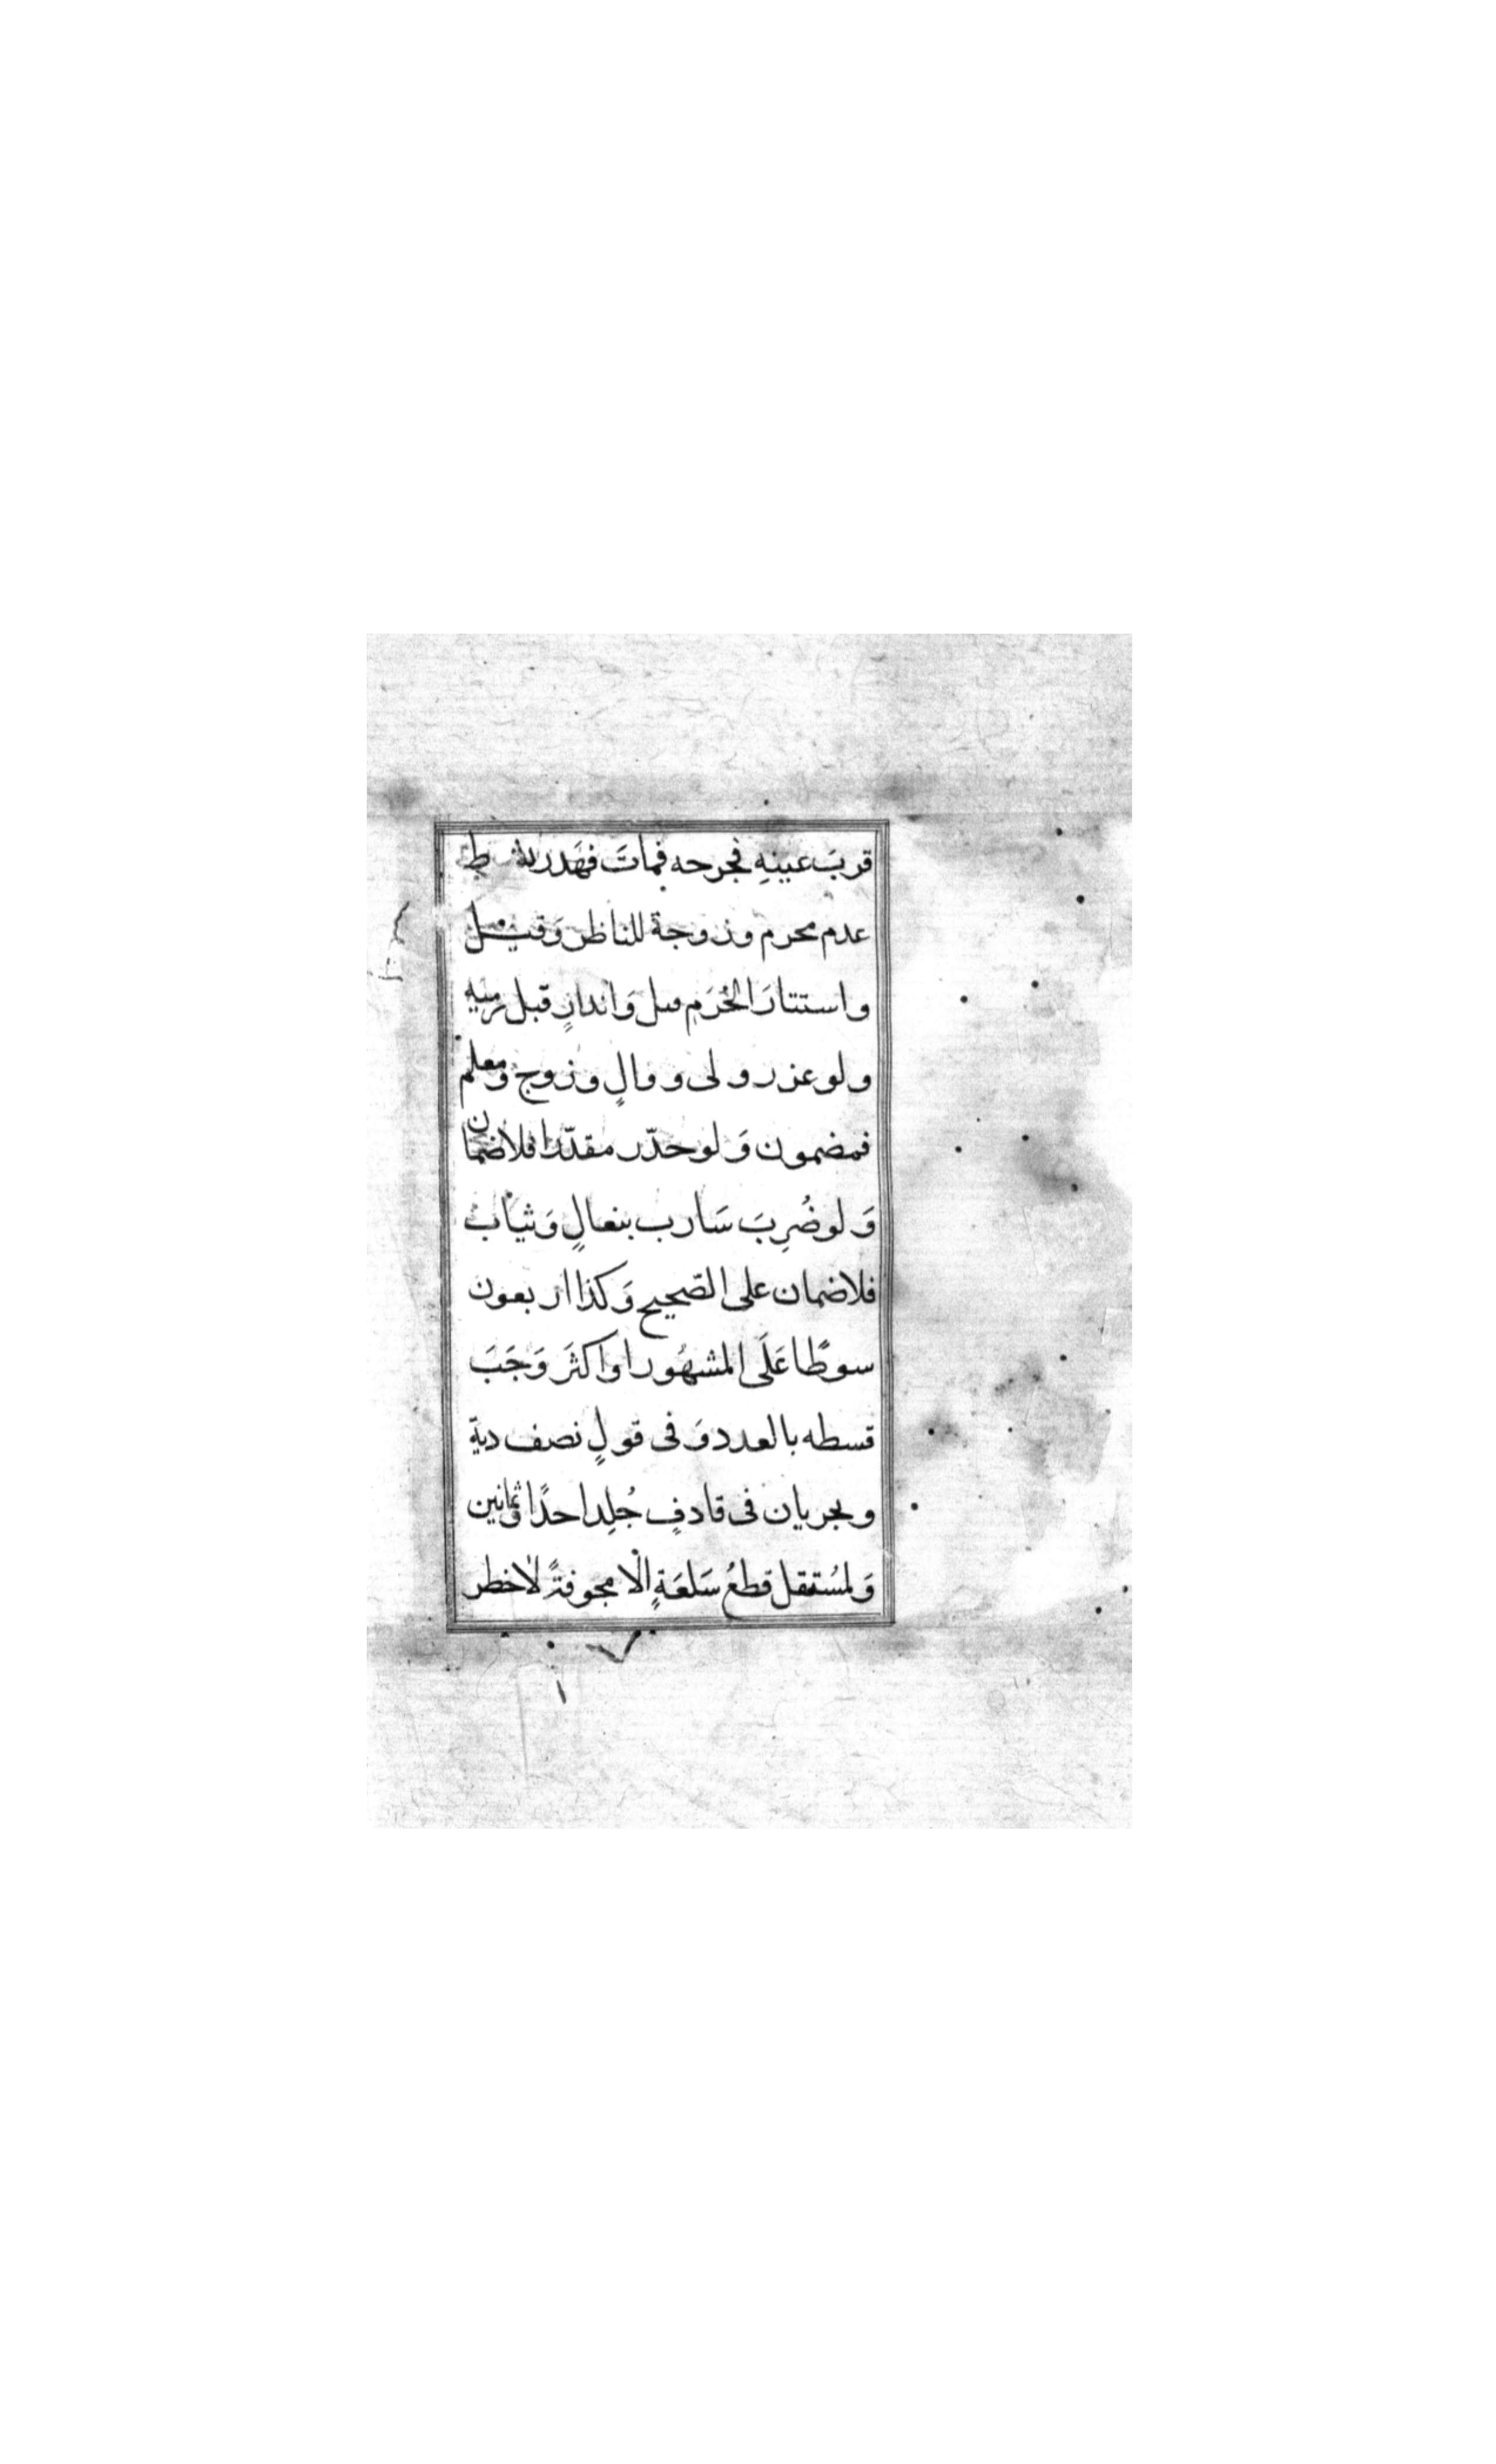 قربَ عينهِ فجرحه فماتَ فهَدر بشرط
عدم محرم وزوجة للناظر وَقيل
واستتارَ الحُرَم قيل وَانذارٍ قبل رميه
ولو عزر ولى ووالٍ وزوج ومعلم
فمضمون وَلو حدّر مقدّرا فلا ضمان
وَلو ضُرِبَ سَارب بنعالٍ وَثياب
فلا ضمان على الصّحيح وَكذا اربعون
سوطًا عَلَى المشهُور او اكثرَ وَجَبَ
قسطه بالعدد وَفى قولٍ نصف دية
ويجريان فى قادفٍ جُلِد احدًا وثمانين
وَلمسُتقل قطعُ سَلعَةٍ الّا مجوفةً لاخطر